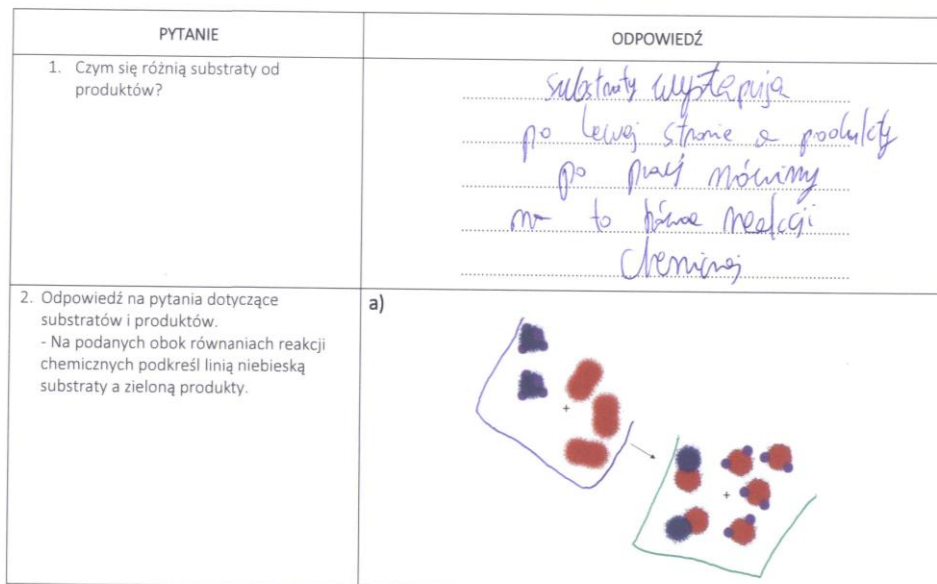 PYTANIE
ODPOWIEDŹ
1. Czym się różnią substraty od
produktów?
substraty występują
po lewej stronie a produkty
po mówimy
to reakcji
chemicznej
2. Odpowiedź na pytania dotyczące
substratów i produktów.
- Na podanych obok równaniach reakcji
chemicznych podkreśl linią niebieską
substraty a zieloną produkty.
a)
+
+